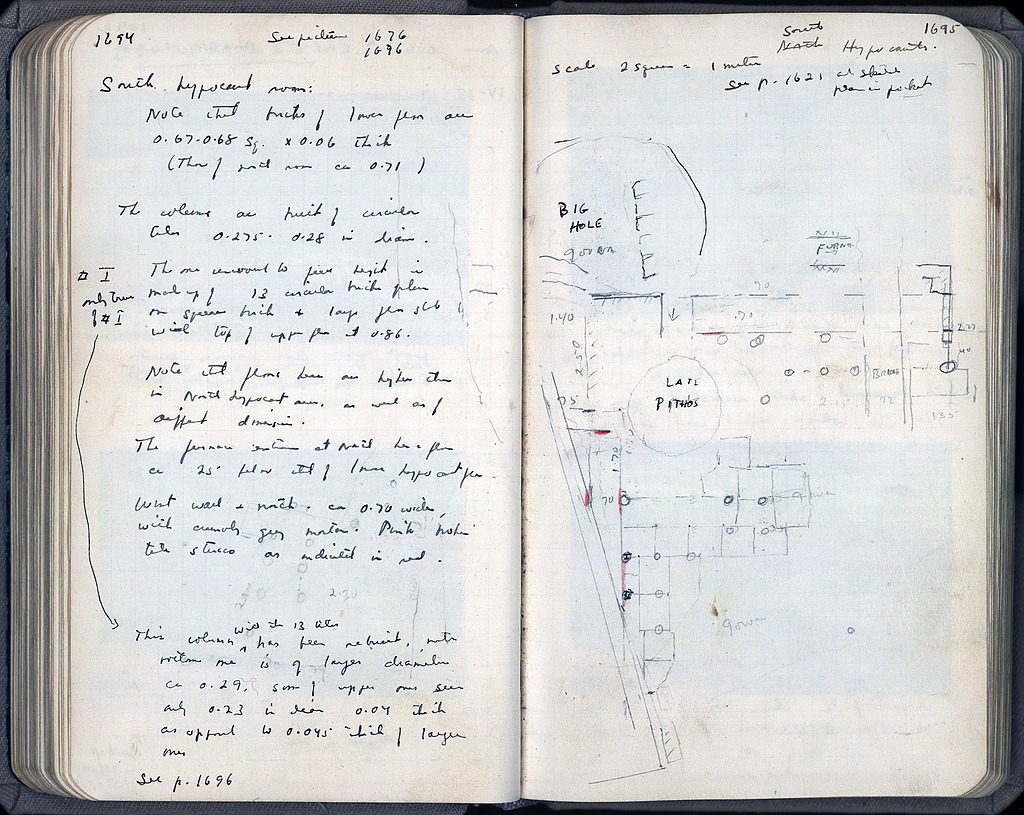 1694
See picture 1676
1696
South hypocaust room:
Note that bricks of lower floor are
0.67-0.68 sq. x 0.06 thick
(Those of north room ca 0.71)
The columns are built of circular
tiles 0.275 - 0.28 in diam.
# I The one preserved to full height is
made up of 13 circular bricks plus
on square brick & large floor slab
with top of upper floor at 0.86.
only true
of # I
Note that floors here are higher than
in North hypocaust area. as well as of
different dimension.
The furnace entrance at north has floor
ca 25 below that of lower hypocaust floor
West wall & north. ca 0.70 wide,
with crumbly grey mortar. Pink
stucco as indicated in red.
with its 13 tiles
This column has been rebuilt, note
bottom one is of larger diameter
ca 0.29, some of upper ones seem
only 0.23 in diam 0.04 thick
as opposed to 0.045 thick of larger
ones
See p. 1696
1695
South
North Hypocausts.
Scale 2 squares = 1 metre
See p. 1621 at
plan in pocket
BIG
HOLE
gowan
FURN
70
.70
1.40
2.50
75
LATE
PITHOS
Broken
2.15
72
2.77
40
135
1.70
70
gowan
gowan